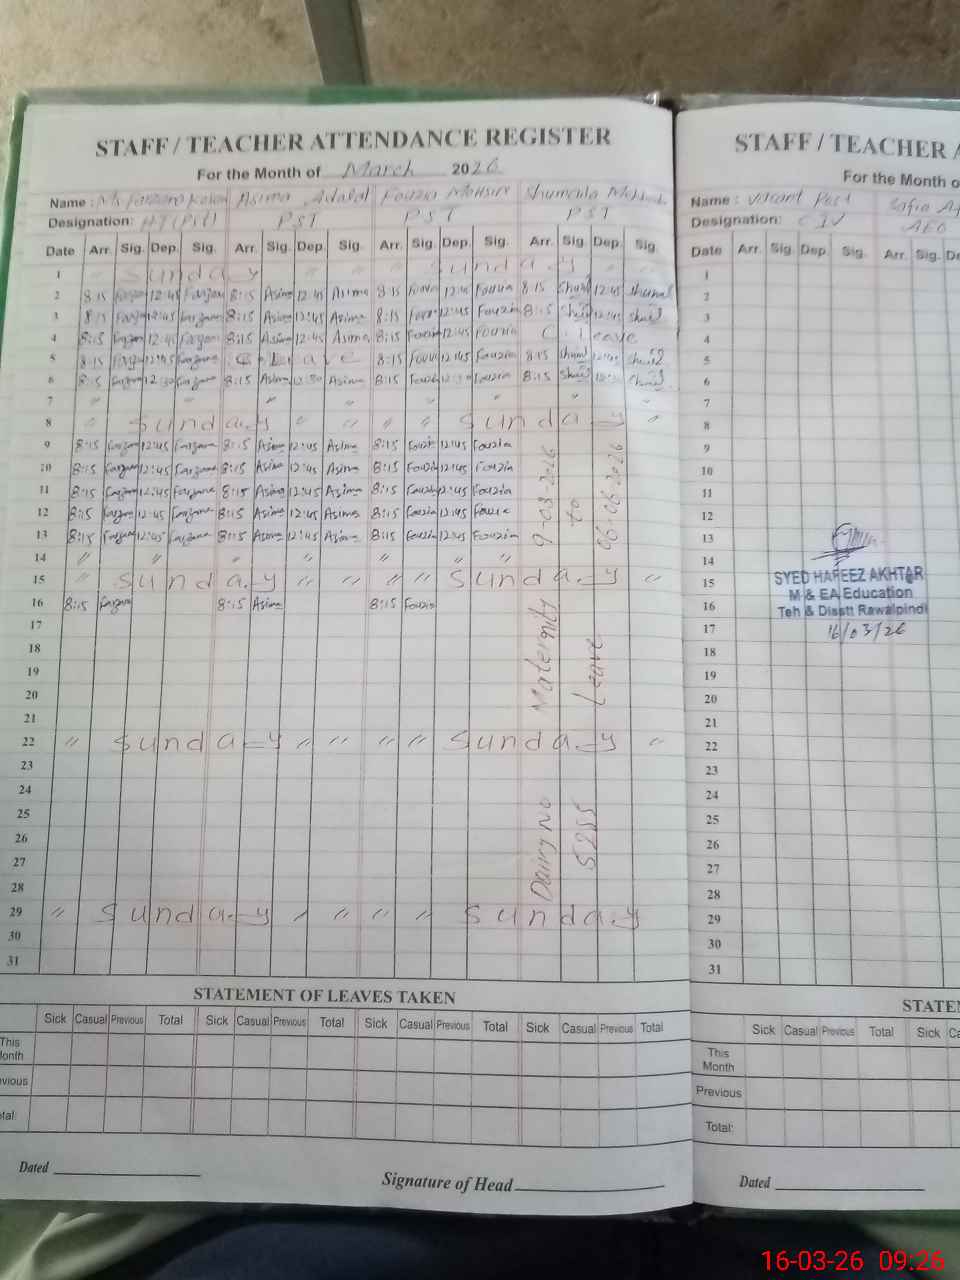 STAFF / TEACHER ATTENDANCE REGISTER
For the Month of March 2026
Name : Asima Fouzia Shumaila
Designation: HT (PST) PST PST PST
Date Arr. Sig. Dep. Sig. Arr. Sig. Dep. Sig. Arr. Sig. Dep. Sig. Arr. Sig. Dep. Sig.
1 " Sunday " " " Sunday " "
2 8:15 Farzana 12:45 Farzana 8:15 Asima 12:45 Asima 8:15 Fouzia 12:45 Fouzia 8:15 12:45
3 8:15 Farzana 12:45 Farzana 8:15 Asima 12:45 Asima 8:15 Fouzia 12:45 Fouzia 8:15 12:45
4 8:15 Farzana 12:45 Farzana 8:15 Asima 12:45 Asima 8:15 Fouzia 12:45 Fouzia C. Leave
5 8:15 Farzana 12:45 Farzana C. Leave 8:15 Fouzia 12:45 Fouzia 8:15 12:45
6 8:15 Farzana 12:30 Farzana 8:15 Asima 12:30 Asima 8:15 Fouzia 12:30 Fouzia 8:15 12:30
7 " " " " " " "
8 " Sunday " " " " Sunday "
9 8:15 Farzana 12:45 Farzana 8:15 Asima 12:45 Asima 8:15 Fouzia 12:45 Fouzia
10 8:15 Farzana 12:45 Farzana 8:15 Asima 12:45 Asima 8:15 Fouzia 12:45 Fouzia
11 8:15 Farzana 12:45 Farzana 8:15 Asima 12:45 Asima 8:15 Fouzia 12:45 Fouzia
12 8:15 Farzana 12:45 Farzana 8:15 Asima 12:45 Asima 8:15 Fouzia 12:45 Fouzia
13 8:15 Farzana 12:45 Farzana 8:15 Asima 12:45 Asima 8:15 Fouzia 12:45 Fouzia
14 " " " " " "
15 " Sunday " " " " Sunday "
16 8:15 Farzana 8:15 Asima 8:15 Fouzia
17
18
19
20
21
22 " Sunday " " " " Sunday "
23
24
25
26
27
28
29 " Sunday " " " " Sunday
30
31
9-03-2026
to
Maternity
Leave
Dairy No
5255
STATEMENT OF LEAVES TAKEN
Sick Casual Previous Total Sick Casual Previous Total Sick Casual Previous Total Sick Casual Previous Total
This
Month
Previous
Total
Dated
Signature of Head
STAFF / TEACHER A
For the Month o
Name : Vacant Post Safia
Designation: C IV AEO
Date Arr. Sig. Dep. Sig. Arr. Sig. De
1
2
3
4
5
6
7
8
9
10
11
12
13
14
15
16
17
18
19
20
21
22
23
24
25
26
27
28
29
30
31
SYED HAFEEZ AKHTAR
M & EA Education
Teh & Disstt Rawalpindi
16/03/26
STATEM
Sick Casual Previous Total Sick Ca
This
Month
Previous
Total:
Dated
16-03-26 09:26